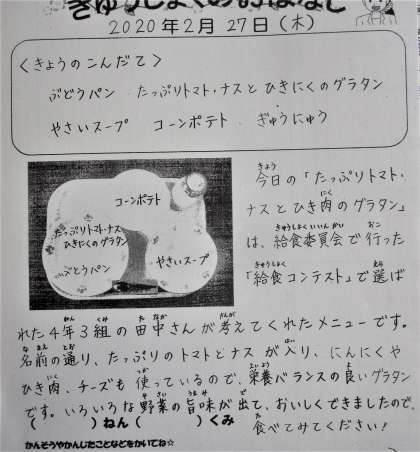 きゅうしょくのおはなし
2020年2月27日(木)
<きょうのこんだて>
ぶどうパン たっぷりトマト・ナスとひきにくのグラタン
やさいスープ コーンポテト ぎゅうにゅう
コーンポテト
たっぷりトマト・ナス
ひきにくのグラタン
ぶどうパン
やさいスープ
今日の「たっぷりトマト・
ナスとひき肉のグラタン」
は、給食委員会で行った
「給食コンテスト」で選ば
れた4年3組の田中さんが考えてくれたメニューです。
名前の通り、たっぷりのトマトとナスが入り、にんにくや
ひき肉、チーズも使っているので、栄養バランスの良いグラタン
です。いろいろな野菜の旨味が出て、おいしくできましたので、
食べてみてください!
( )ねん( )くみ
かんそうやかんじたことなどをかいてね☆